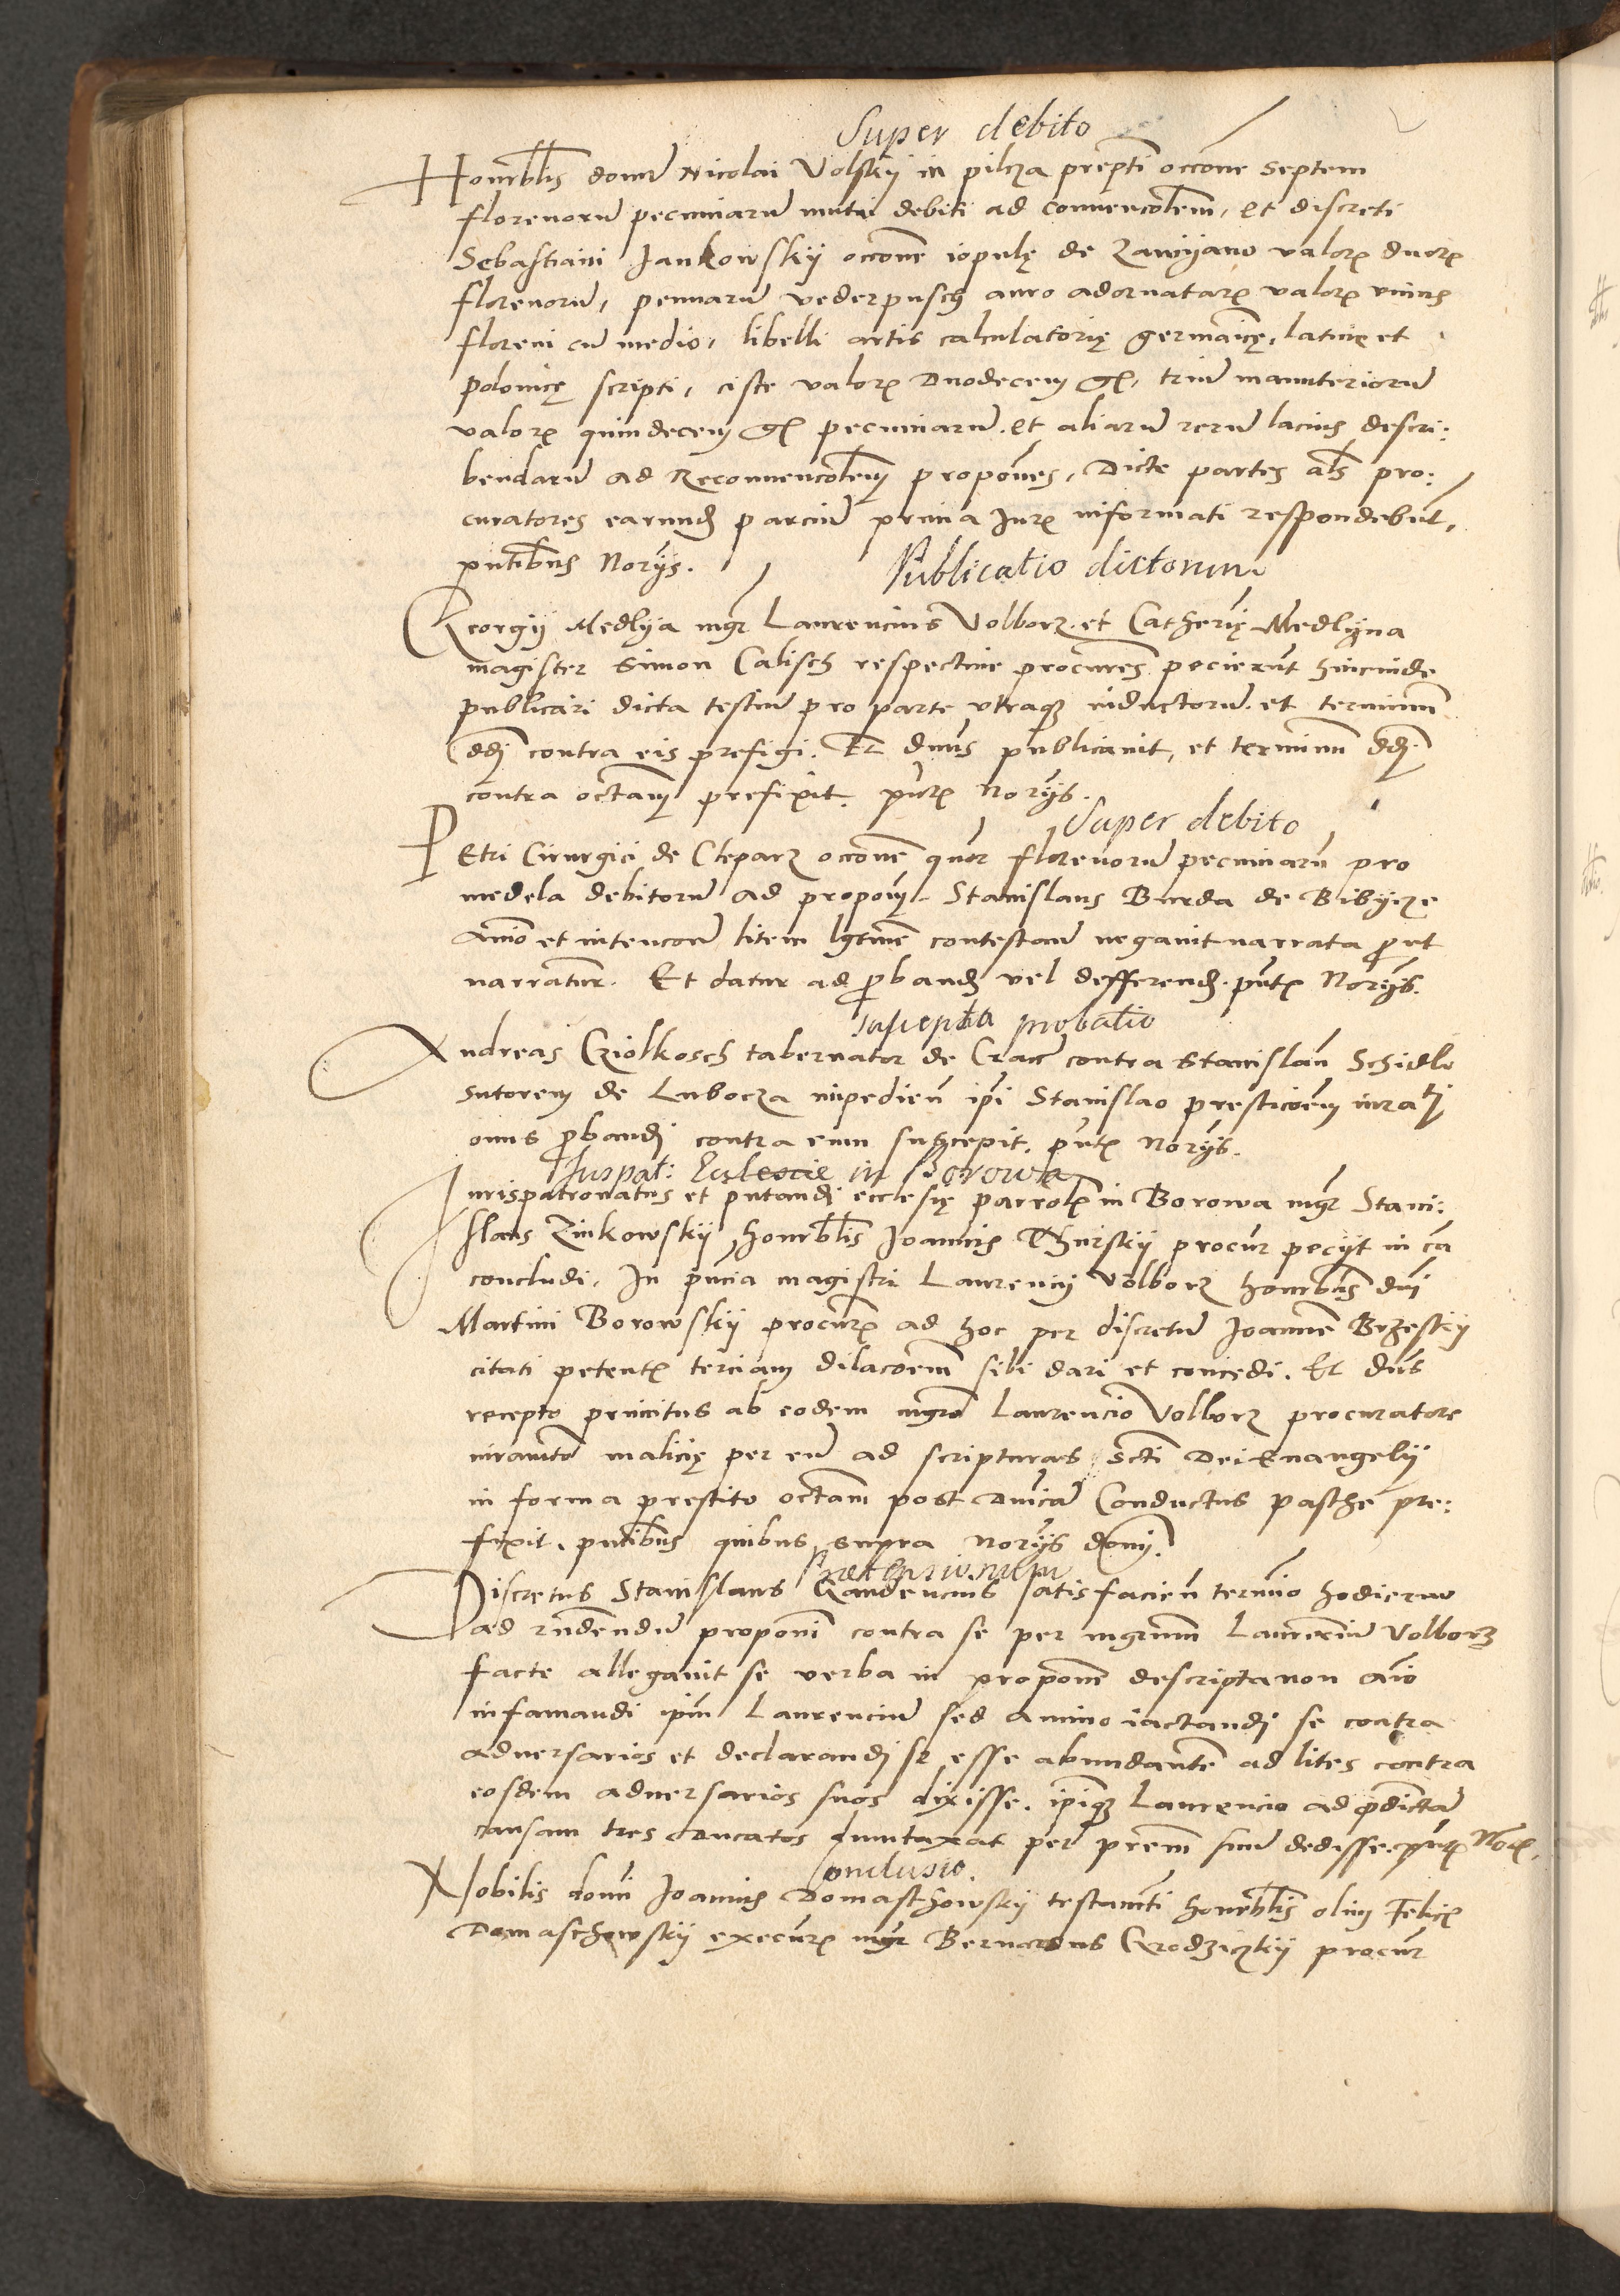 Super debito
Honorablis domi Nicolai Volskij in pilcza prepti occone septem
florenorum pecuniarum mutui debiti ad conuencolem, et discreti
Sebastiani Jankowskij occone iopulę de Zawijano valor duor
florenorum, pennarum vederpusch auro adornatar valor unius
floreni cum medio, libelli artis calculatorię germanicę, latinę et
polonicę scripti, ciste valor duodecem gr, trium manuteriorum
valor quindecem gr pecuniarum et aliarum rerum lacius descri:
bendarum ad Reconuencolem propones, Dicte partes als pro:
curatores earund parcium prima Jur informati respondebut,
pntibus Norijs.
Publicatio dictorum
Georgij Medlija mgr Laurencius Volborz et Catherię Medlijna
magister Simon Calisch respectiue procures pecierut hincinde
publicari dicta testium pro parte vtraque inductorum et terminum
ddi contra eis prefigi. Et dnus publicauit, et terminu ddi
contra octam prefixit. pntr Norijs.
Super debito
Petri Cirurgici de Clepar occone quor florenorum pecuniaru pro
medela debitorum ad propom Stanislaus Burda de Bibijcze
animo et intencoe litem lgtime contestam negauit narrata prout
narrantur. Et datur ad proband vel defferend pntr Norijs.
suscepta probatio
Andreas Cziolkosch tabernator de Crac contra Stanislau Schidlo
sutorem de Luborza impedien ipi Stanislao presticoem iurati
onus probandi contra eum suscepit. pntr Norijs.
Juspat: Eclesie in Borowa
Jurispatronatus et pntandi ecclesię parrol in Borowa mgr Stani:
slaus Zinkowskij honorblis Joannis Thurskij procur pecijt in ca
concludi. In pncia magistri Laurencij Volborz honorblis dni
Martini Borowskij procur ad hoc per discretum Joannem Brzeskij
citati petent terciam dilacoem sibi dari et concedi. Et dns
recepto primitus ab eodem mgro Laurencio Volborz procuratore
iuramto malicię per eum ad scripturas scti Dei Euangelij
in forma prestito octam post dnicam Conductus pasche pre:
fixit. pntibus quibus supra Norijs domj.
Discretus Stanislaus Gaudencius satisfacien termino hodierno
ad rndendum proponi contra se per mgrum Laurencium Volborz
facte allegauit se verba in propone descripta non aio
infamandi ipm Laurencium sed animo iactandi se contra
aduersarios et declarandi se esse abundante ad lites contra
eosdem aduersarios suos dixisse. ipique Laurencio ad predictam
causam tres ducatos dumtaxat per prem suum dedisse. pntr Nor.
Conclusio.
Nobilis domi Joannis Domaschowskij testamti honorblis olim Felic
Domaschowskij execur mgr Bernardus Grodziczkij procur